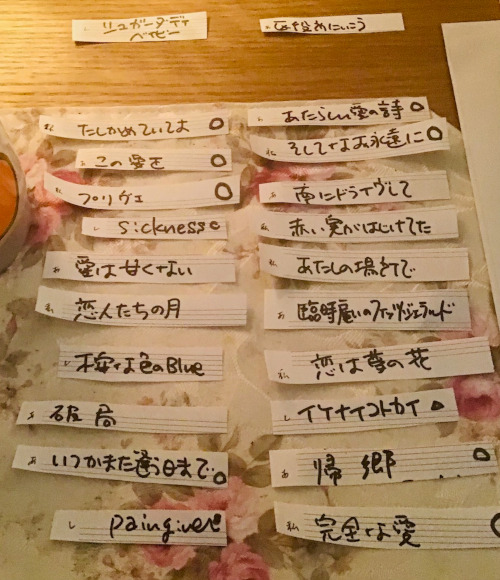 シュガーダディ
ベイビー
にいこう
私 たしかめていてよ
あ この愛を
私 プリヴェ
し sickness
あ 愛は甘くない
私 恋人たちの月
し 不安な色のBlue
あ 破局
あ いつかまた逢う日まで
し paingiver
あ あたらしい愛の詩
私 そしてなお永遠に
あ 南にドライヴして
私 赤い実がはじけてた
私 あたしの
あ 臨時雇いのフィッツジェラルド
私 恋は の花
し イケナイコトカイ
あ 帰郷
私 完全な愛